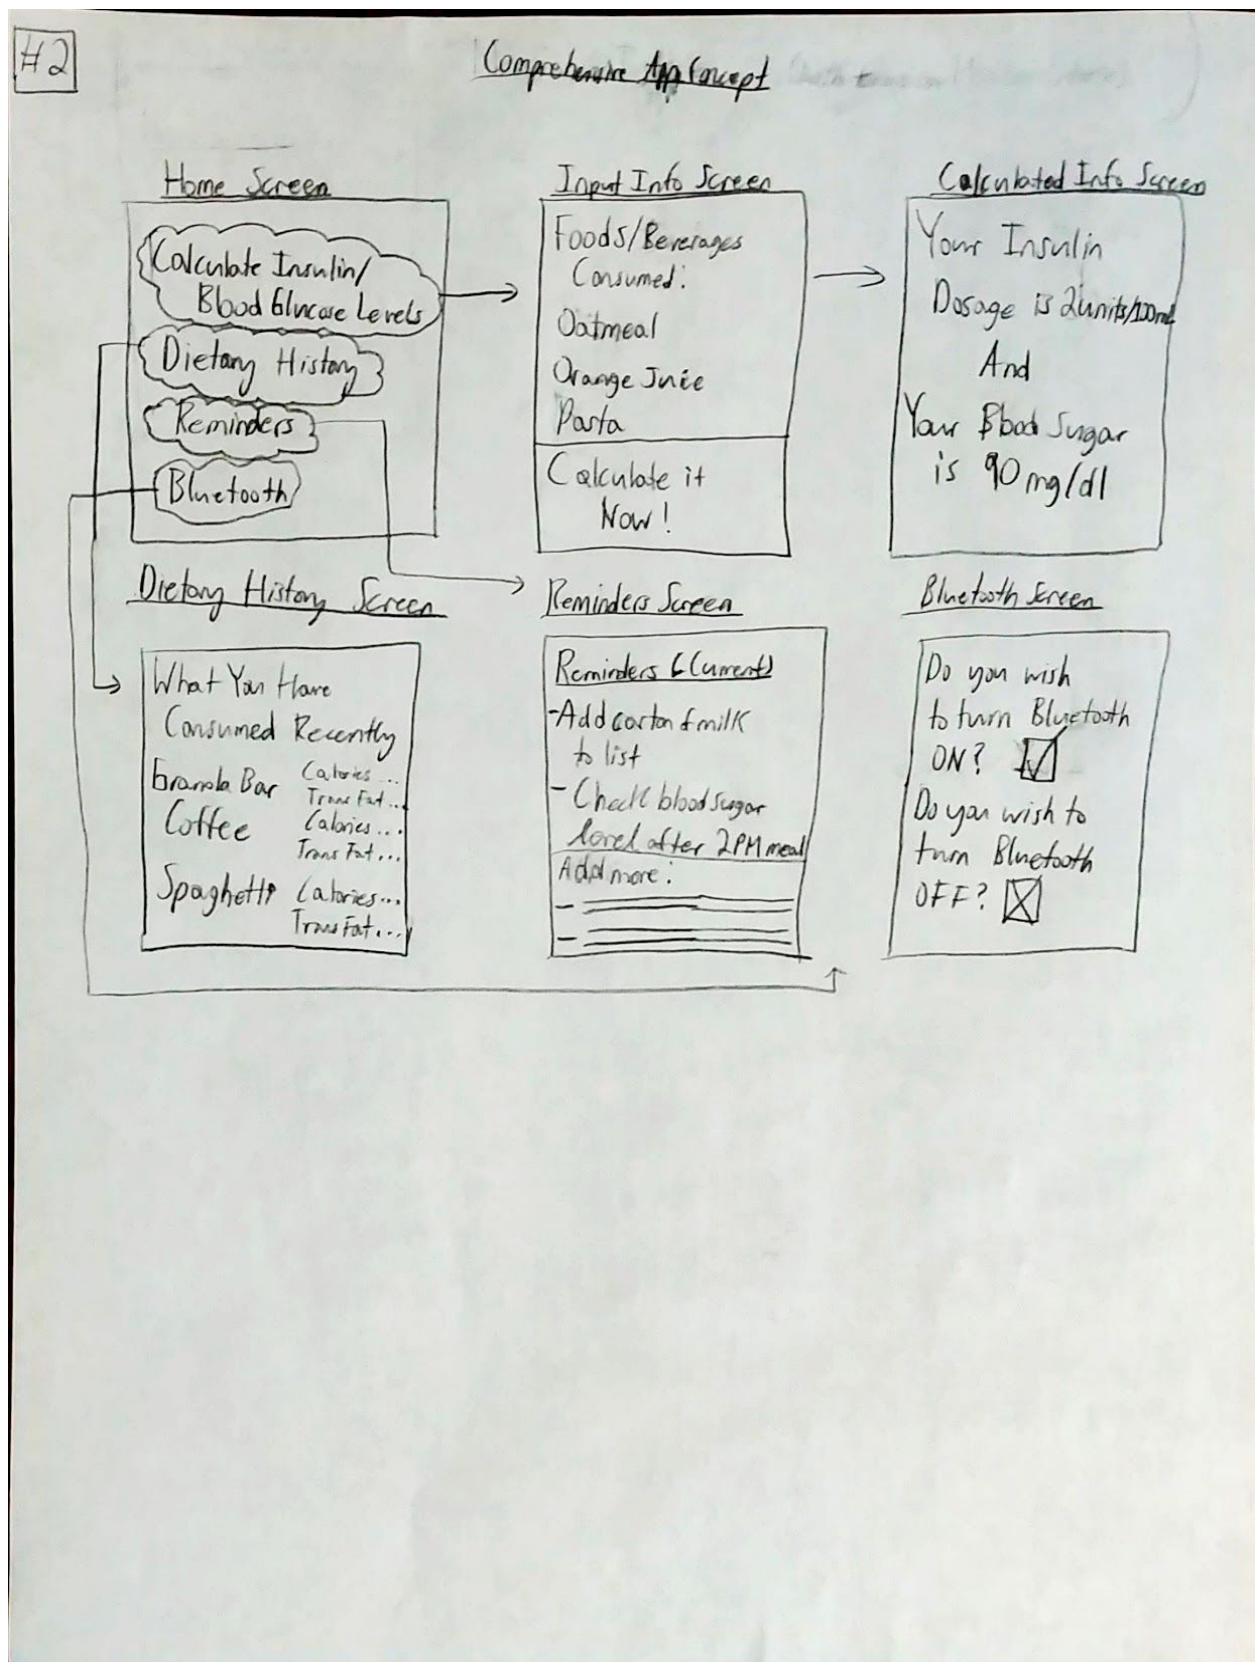 #2
Comprehensive App Concept
Home Screen
Calculate Insulin/
Blood Glucose Levels
Dietary History
Reminders
Bluetooth
Input Info Screen
Foods/Beverages
Consumed:
Oatmeal
Orange Juice
Pasta
Calculate it
Now!
Calculated Info Screen
Your Insulin
Dosage is 2units/100mL
And
Your Blood Sugar
is 90 mg/dl
Dietary History Screen
What You Have
Consumed Recently
Granola Bar Calories...
Trans Fat...
Coffee Calories...
Trans Fat...
Spaghetti Calories...
Trans Fat...
Reminders Screen
Reminders (Current)
-Add carton of milk
to list
- Check blood sugar
level after 2PM meal
Add more:
Bluetooth Screen
Do you wish
to turn Bluetooth
ON?
Do you wish to
turn Bluetooth
OFF?